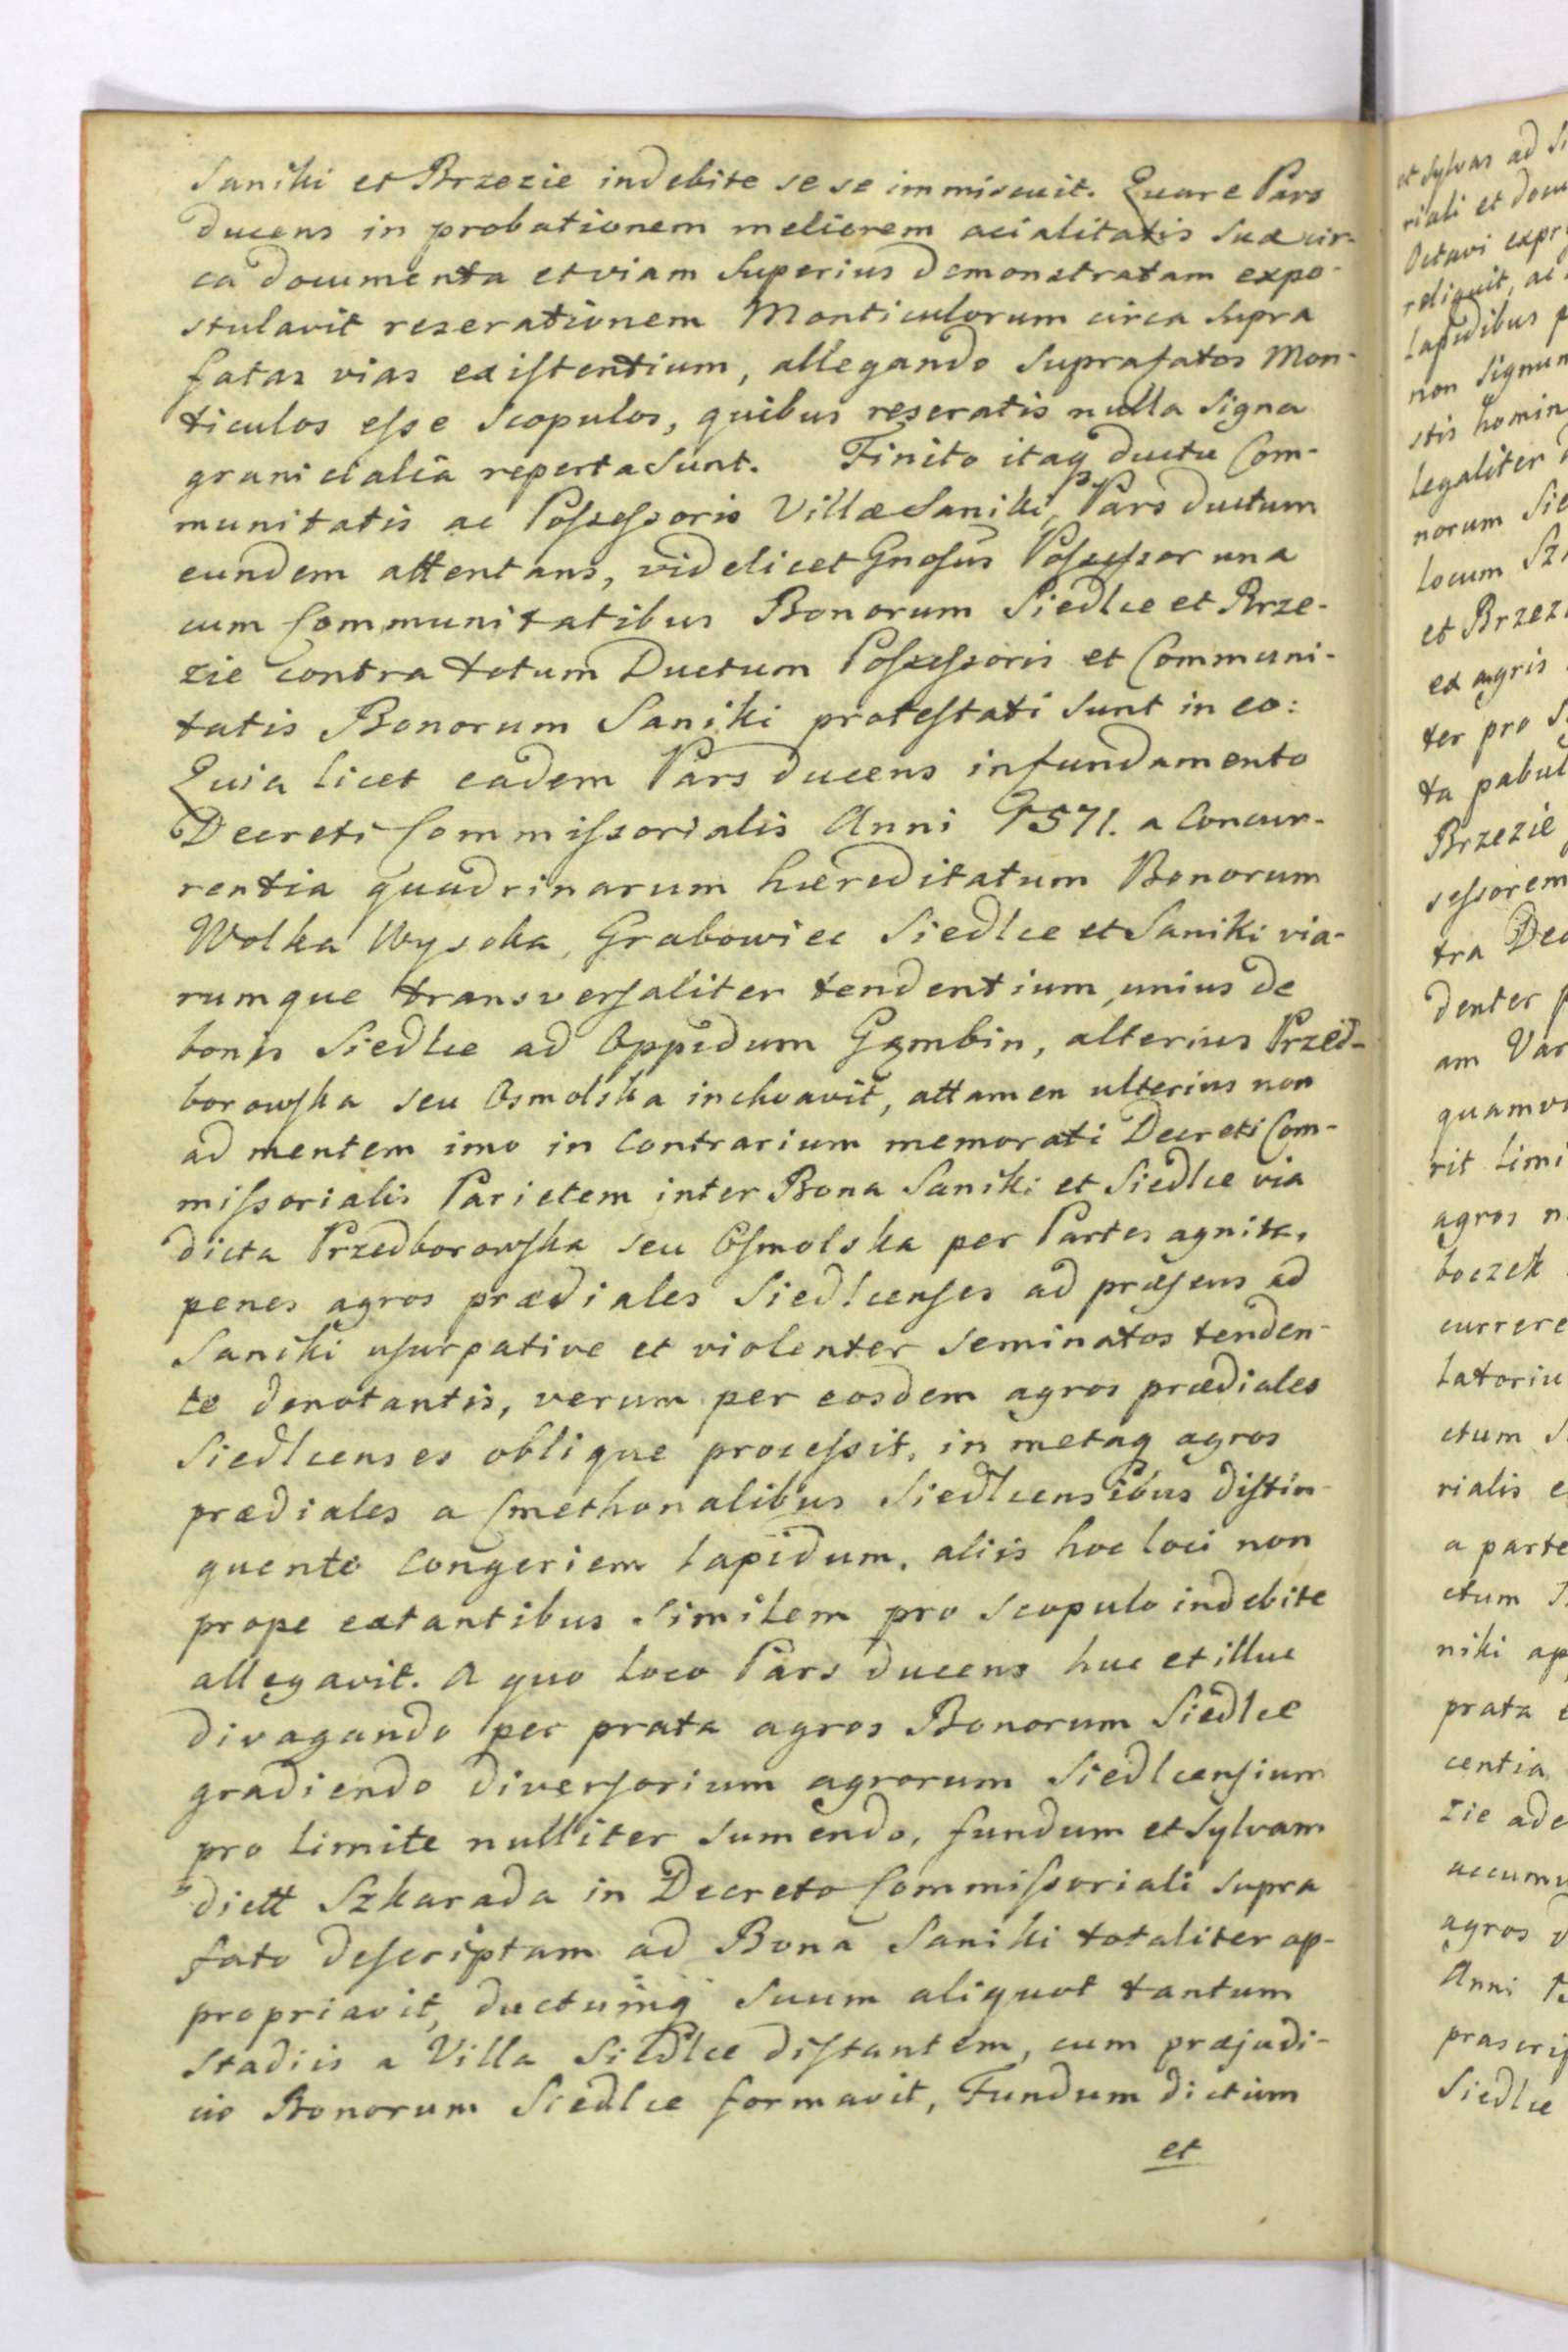 Saniki et Brzezie indebite sese immiscuit. Quare Pars
ducens in probationem meliorem acialitatis Suæ cir-
ca documenta et viam Superius demonstratam expo-
stulavit reserationem Monticulorum circa Supra
fatas vias existentium, allegando Suprafatos Mon-
ticulos esse Scopulos, quibus reseratis nulla Signa
granicialia reperta Sunt. Finito itaq ductu Com-
munitatis ac Possessoris Villæ Saniki, Pars ductum
eundem attentans, videlicet Gnosus Possessor una
cum Communitatibus Bonorum Siedlce et Brze-
zie contra totum Ductum Possessoris et Communi-
tatis Bonorum Saniki protestati Sunt in eo:
Quia licet eadem Pars ducens in fundamento
Decreti Commissorialis Anni 1571. a Concur-
rentia quadrinarum hæreditatum Bonorum
Wolka Wysoka, Grabowiec Siedlce et Saniki via-
rumque transversaliter tendentium, unius de
bonis Siedlce ad Oppidum Gąmbin, alterius Przed-
borowska seu Osmolska inchoavit, attamen ulterius non
ad mentem imo in Contrarium memorati Decreti Com-
missorialis Parietem inter Bona Saniki et Siedlce via
dicta Przedborowska seu Osmolska per Partes agnita,
penes agros prædiales Siedlcenses ad præsens ad
Saniki usurpative et violenter Seminatos tenden-
te denotantis, verum per eosdem agros prædiales
Siedlcenses oblique processit, in metaq agros
prædiales a Cmethonalibus Siedlcensibus distin-
guente Congeriem Lapidum, aliis hoc loci non
prope extantibus Similem pro Scopulo indebite
allegavit. A quo Loco Pars ducens huc et illuc
divagando per prata agros Bonorum Siedlce
gradiendo diversorium agrorum Siedlcensium
pro Limite nulliter Sumendo, fundum et Sylvam
dictt Szkarada in Decreto Commissoriali Supra
fato descriptam ad Bona Saniki totaliter ap-
propriavit, ductumq Suum aliquot tantum
Stadiis a Villa Siedlce distantem, cum præjudi-
cio Bonorum Siedlce formavit, Fundum dictum
et
et Sylvas ad
riali et
Octavi
reliquit, ac
Lapidibus
non Signum
stis homin
Legaliter
norum
Locum
et Brzezi
ex agris
ter pro
ta pabul
Brzezie
sessorem
tra
denter
am
quamvi
rit Limi
agros
boczek
currere
Latoriu
ctum
rialis
a parte
ctum
niki
prata
centia
zie
accumu
agros
Anni
præscri
Siedlce